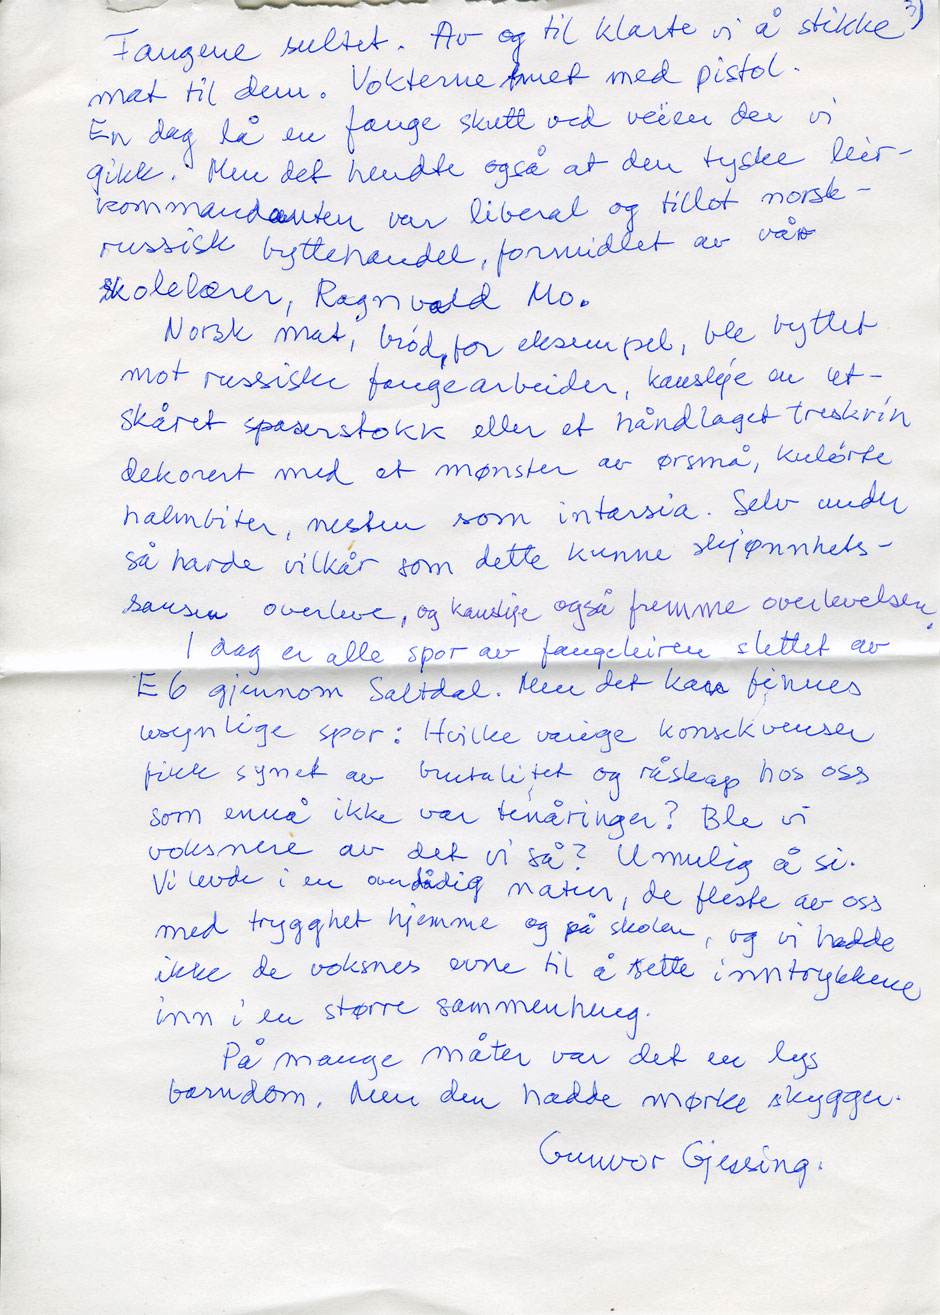 3)
Fangene sultet. Av og til klarte vi å stikke
mat til dem. Vokterne truet med pistol.
En dag lå en fange skutt ved veien der vi
gikk. Men det hendte også at den tyske leir-
kommandanten var liberal og tillot norsk-
russisk byttehandel, formidlet av vår
skolelærer, Ragnvald Mo.
Norsk mat, brød, for eksempel, ble byttet
mot russiske fangearbeider, kanskje en ut-
skåret spaserstokk eller et håndlaget treskrin
dekorert med et mønster av ørsmå, kulørte
halmbiter, nesten som intarsia. Selv under
så harde vilkår som dette kunne skjønnhets-
sansen overleve, og kanskje også fremme overlevelsen.
I dag er alle spor av fangeleiren slettet av
E6 gjennom Saltdal. Men det kan finnes
usynlige spor: Hvilke varige konsekvenser
fikk synet av brutalitet og råskap hos oss
som ennå ikke var tenåringer? Ble vi
voksnere av det vi så? Umulig å si.
Vi levde i en overdådig natur, de fleste av oss
med trygghet hjemme og på skolen, og vi hadde
ikke de voksnes evne til å sette inntrykkene
inn i en større sammenheng.
På mange måter var det en lys
barndom. Men den hadde mørke skygger.
Gunvor Gjessing.